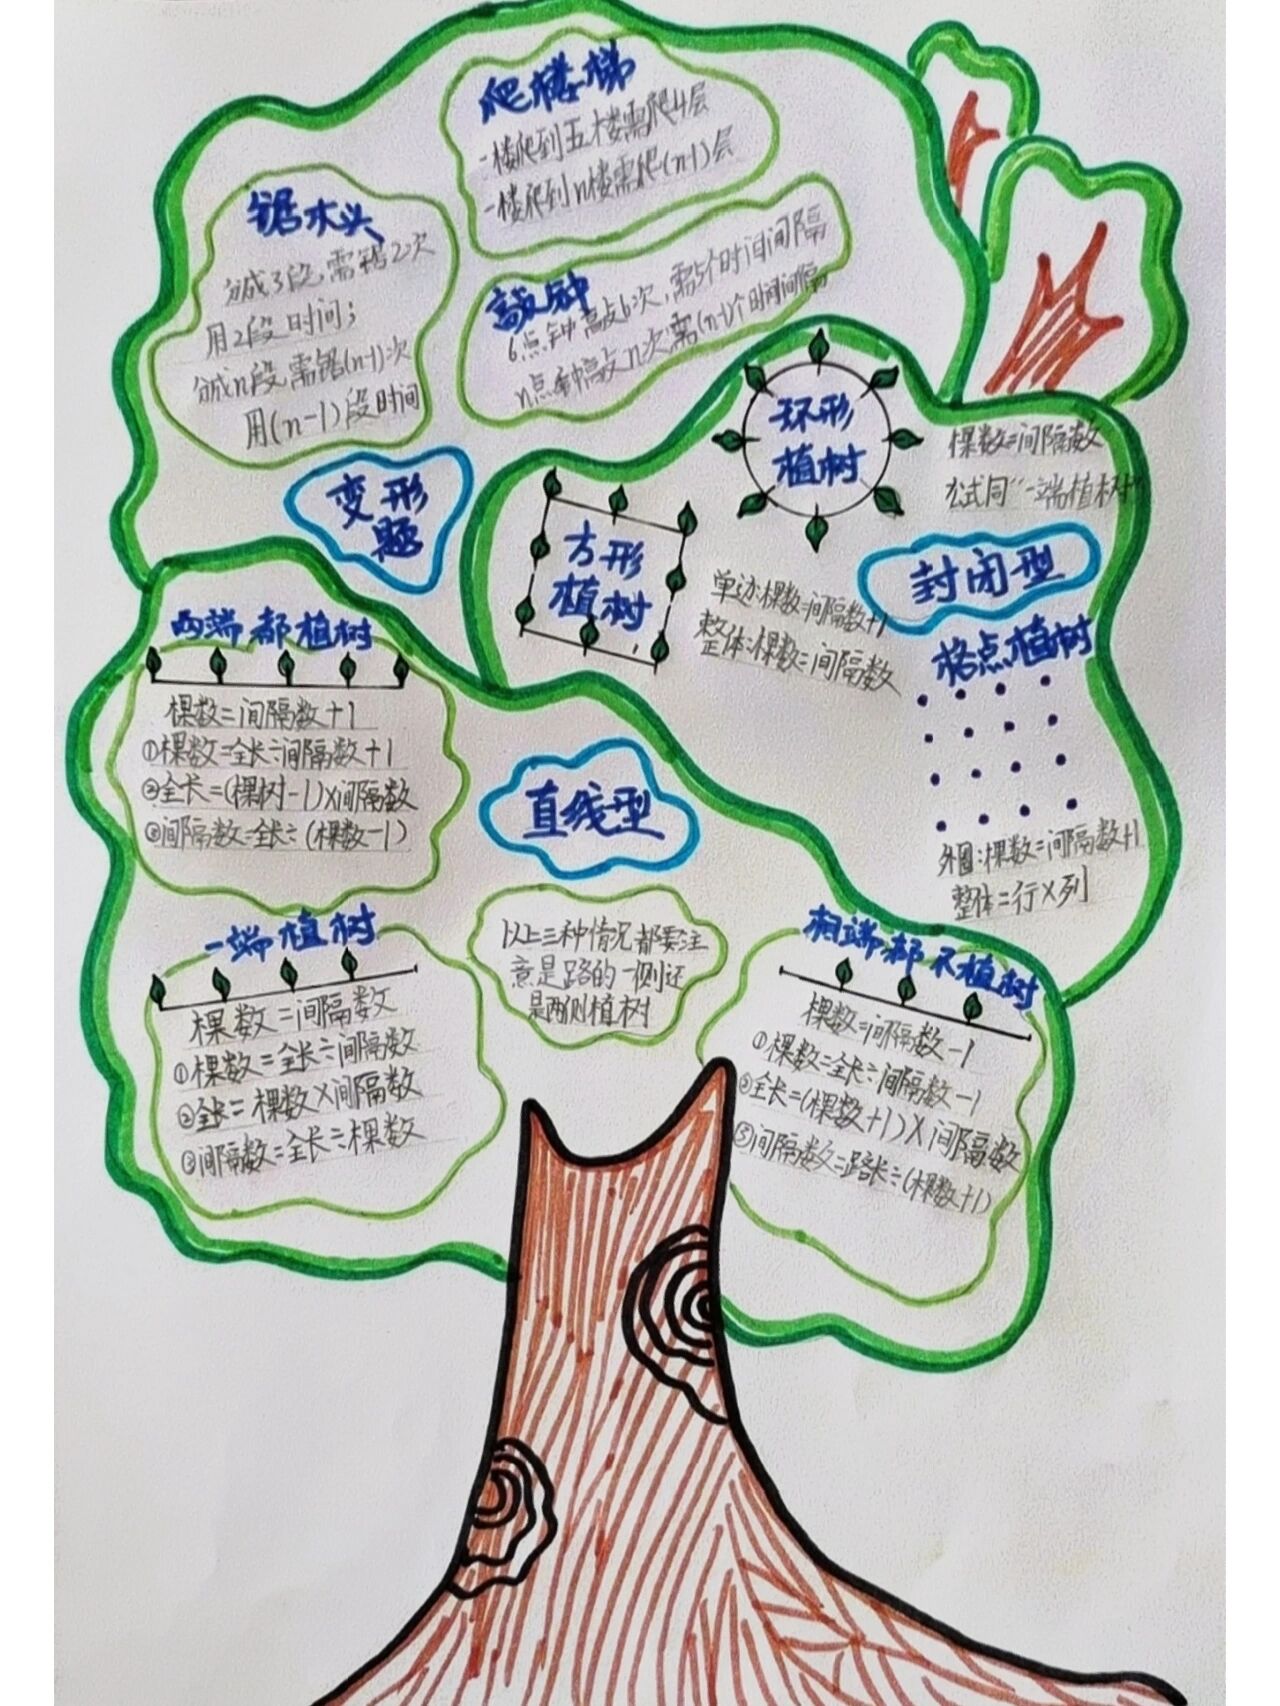 爬楼梯
一楼爬到五楼需爬4层
一楼爬到n楼需爬(n-1)层
锯木头
分成3段,需锯2次
用2段时间;
分成n段,需锯(n-1)次
用(n-1)段时间
敲钟
6点钟敲6次,需5个时间间隔
n点钟敲n次需(n-1)个时间间隔
变形
题
环形
植树
棵数=间隔数
公式同“一端植树”
方形
植树
单边:棵数=间隔数+1
整体:棵数=间隔数
封闭型
格点植树
外圈:棵数=间隔数+1
整体=行×列
两端都植树
棵数=间隔数+1
①棵数=全长÷间隔数+1
②全长=(棵树-1)×间隔数
③间隔数=全长÷(棵数-1)
直线型
一端植树
棵数=间隔数
①棵数=全长÷间隔数
②全长=棵数×间隔数
③间隔数=全长÷棵数
以上三种情况都要注
意是路的一侧还
是两侧植树
相端都不植树
棵数=间隔数-1
①棵数=全长÷间隔数-1
②全长=(棵数+1)×间隔数
③间隔数=路长÷(棵数+1)